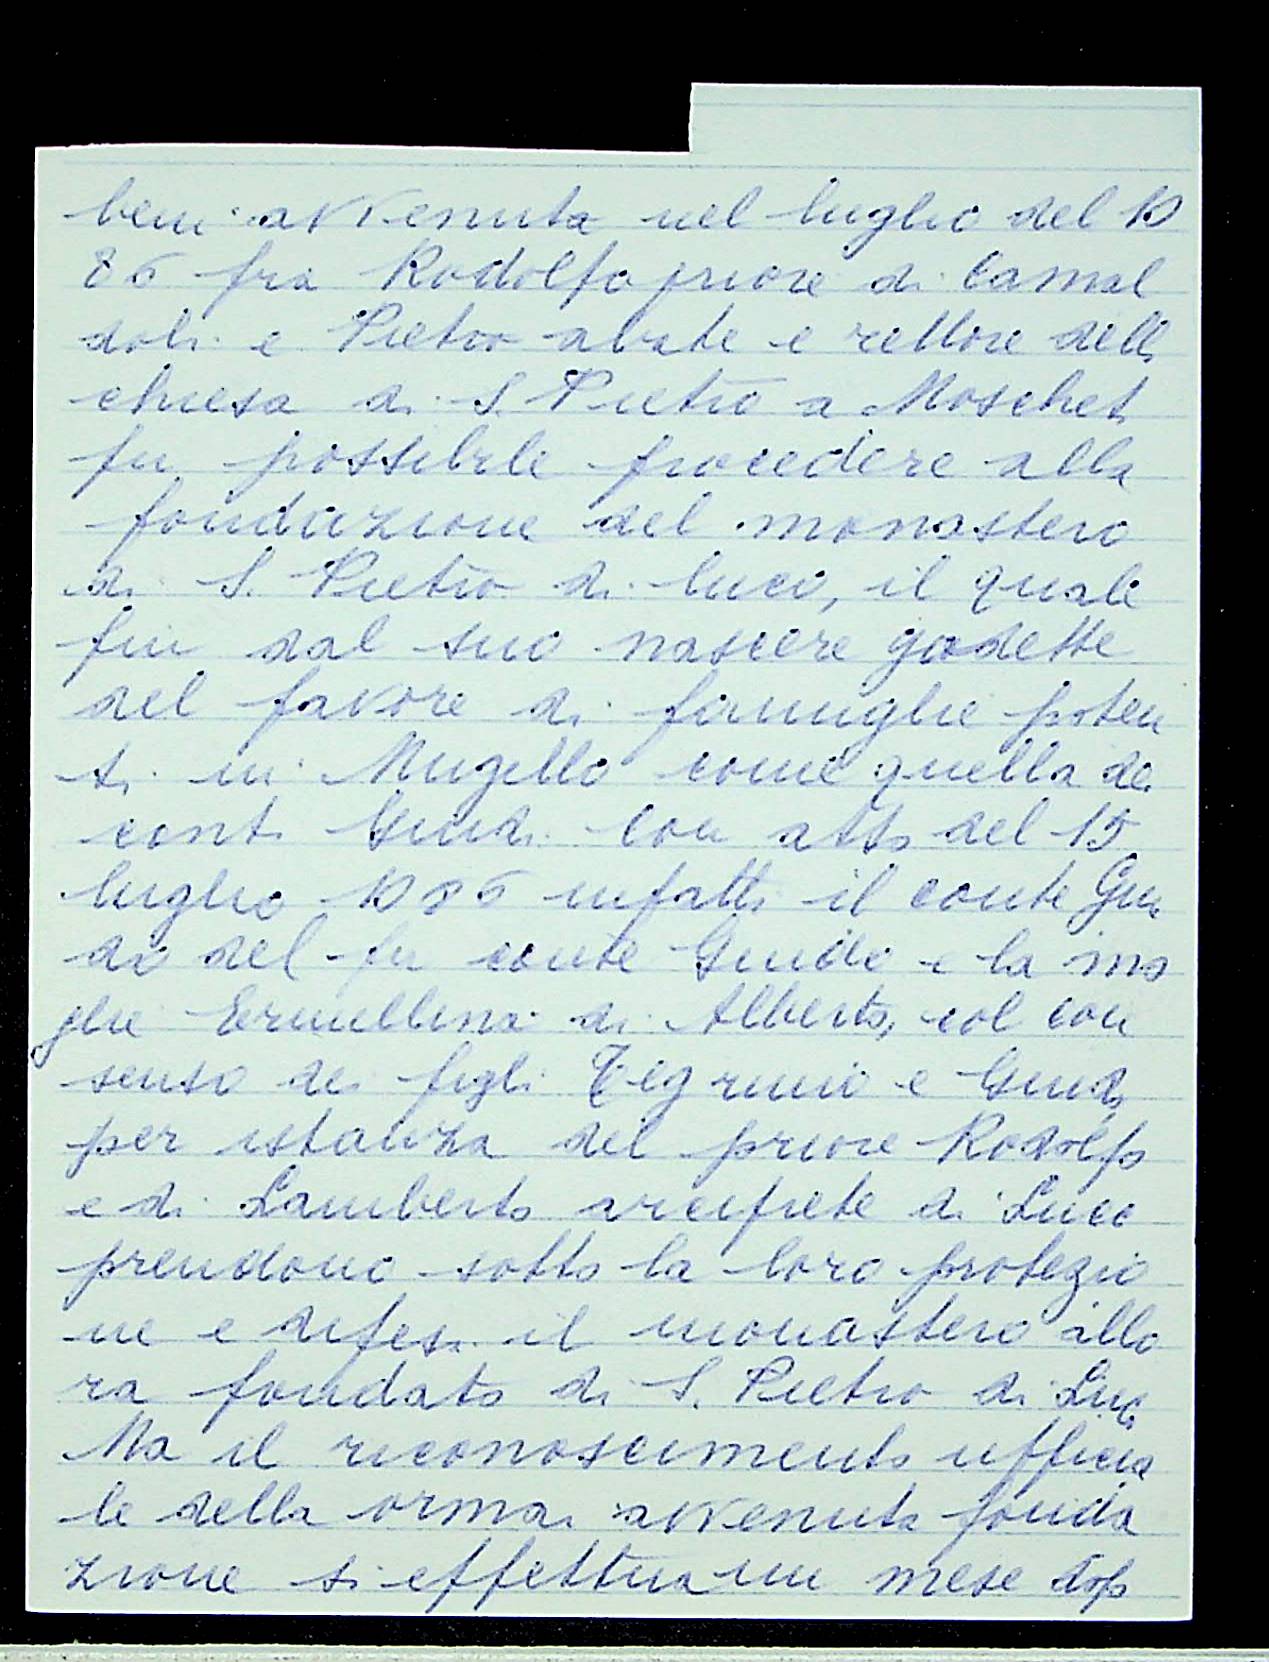 beni avvenuta nel luglio del 10
86 fra Rodolfo priore di Camal
doli e Pietro abate e rettore dell
chiesa di S. Pietro a Moschet
fu possibile procedere alla
fondazione del monastero
di S. Pietro di Luco, il quale
fin dal suo nascere godette
del favore di famiglie poten
ti in Mugello come quella dei
conti Guidi. Con atto del 15
luglio 1086 infatti il conte Gui
do del fu conte Guido e la mo
glie Ermellina di Alberto, col con
senso dei figli Tegrimo e Guido
per istanza del priore Rodolfo
e di Lamberto arciprete di Luco
prendono sotto la loro protezio
ne e difesa il monastero allo
ra fondato di S. Pietro di Luco
Ma il riconoscimento ufficia
le della ormai avvenuta fonda
zione si effettua un mese dopo